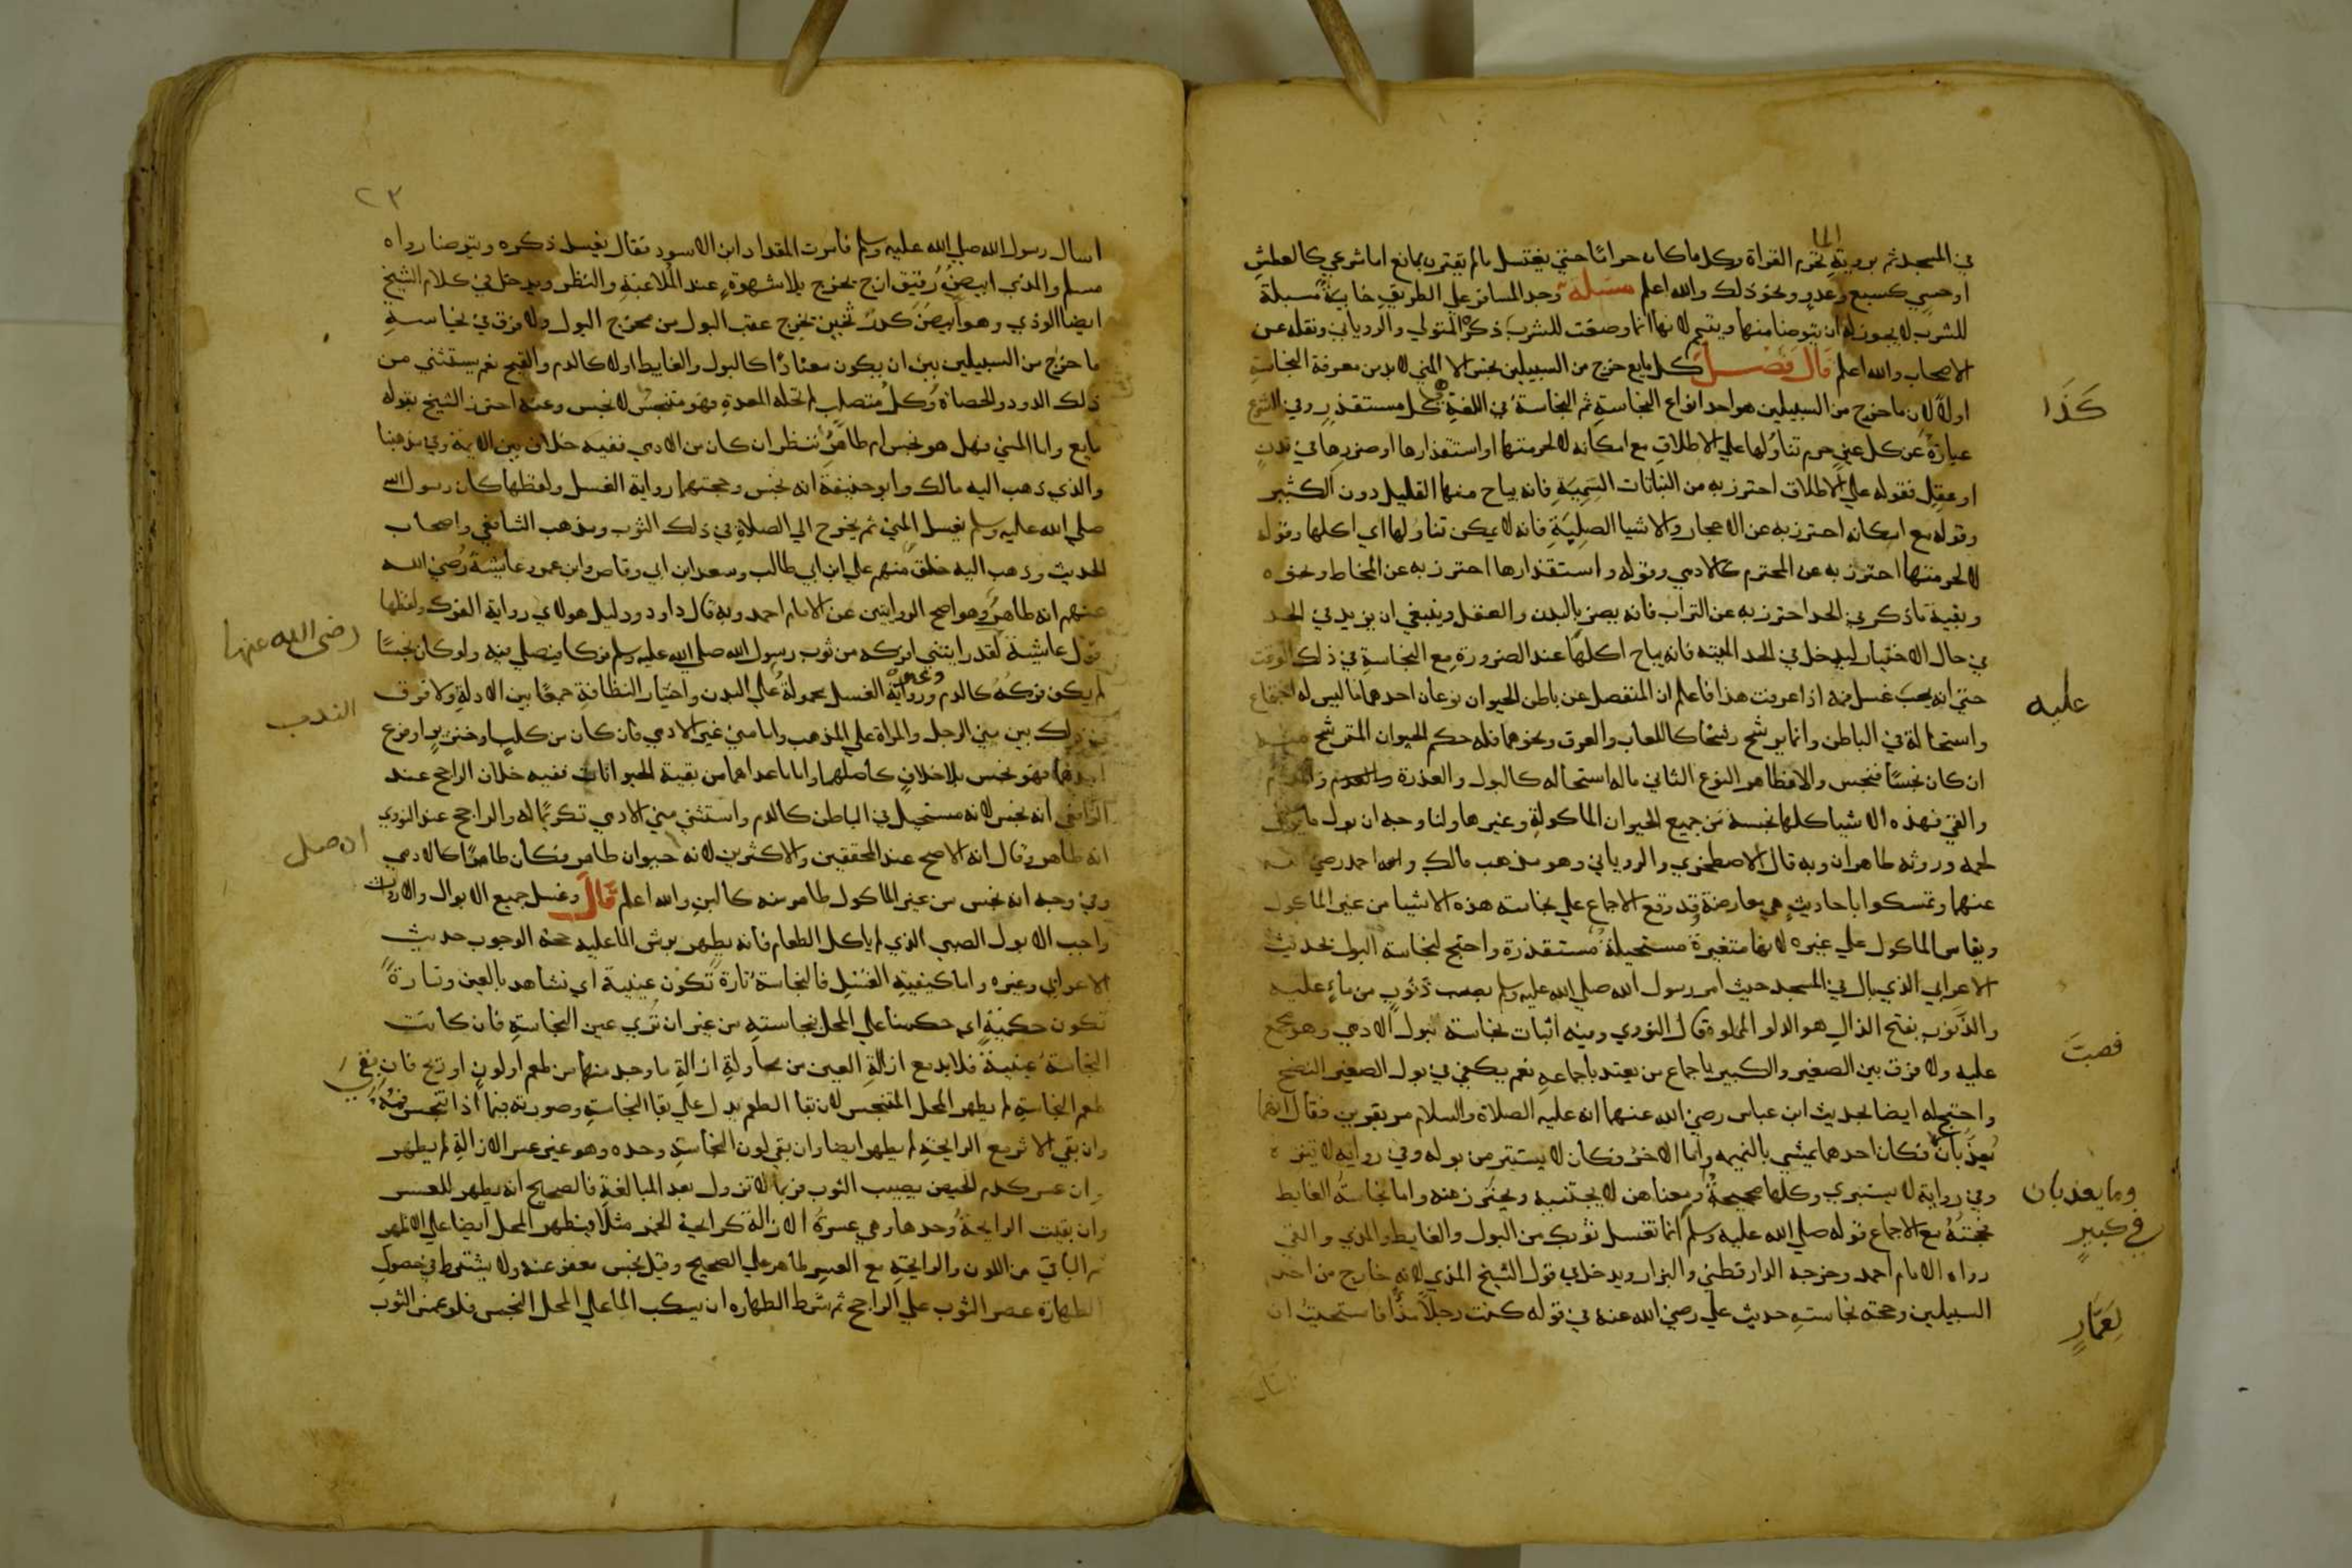 في المسجد ثم برؤية الماء تحرم القراة وكل ما كان حراما حتى يغتسل ما لم يقترن بمانع اما شرعي كالعطش
او حسي كسبع وعدو ونحو ذلك والله اعلم مسئلة وجد المسافر علي الطريق خابية مسبلة
للشرب لا يجوز له ان يتوضا منها ويتيمم لانها انما وضعت للشرب ذكره المتولي والروياني ونقله عن
الاصحاب والله اعلم قال فصل كل مايع خرج من السبيلين نجس الا المني لا بد من معرفة النجاسة
اولا لان ما خرج من السبيلين هو احد انواع النجاسة ثم النجاسة في اللغة كل مستقذر وفي الشرع
كذا
عبارة عن كل عين حرم تناولها علي الاطلاق مع امكانه لا لحرمتها او استقذارها او ضررها في بدن
او عقل فقوله علي الاطلاق احترز به من النباتات السمية فانه يباح منها القليل دون الكثير
وقوله مع امكانه احترز به عن الاحجار والاشيا الصلبة فانه لا يمكن تناولها اي اكلها وقوله
لا لحرمتها احترز به عن المحترم كالادمي وقوله واستقذارها احترز به عن المخاط ونحوه
وبقية ما ذكر في الحد احترز به عن التراب فانه يضر بالبدن والعقل وينبغي ان يزيد في الحد
في حال الاختيار ليدخل في الحد الميتة فانه يباح اكلها عند الضرورة مع النجاسة في ذلك الوقت
حتي انه يجب غسل فمه اذا عرفت هذا فاعلم ان المنفصل عن باطن الحيوان نوعان احدهما ما ليس له اجتماع
عليه
واستحالة في الباطن وانما يرشح رشحا كاللعاب والعرق ونحوهما فله حكم الحيوان المترشح منه
ان كان نجسا فنجس والا فطاهر النوع الثاني ماله استحاله كالبول والعذرة والدم
والقي فهذه الاشيا كلها نجسة من جميع الحيوان الماكولة وغيرها ولنا وجه ان بول ما يوكل
لحمه وروثه طاهران وبه قال الاصطخري والروياني وهو مذهب مالك واحمد رضي الله
عنهما وتمسكوا باحاديث هي معارضة قد وقع الاجماع علي نجاسة هذه الاشيا من غير الماكول
ويقاس الماكول علي غيره لانها متغيرة مستحيلة مستقذرة واحتج لنجاسة البول بحديث
الاعرابي الذي بال في المسجد حيث امر رسول الله صلي الله عليه وسلم بصب ذنوب من ماء عليه
والذنوب بفتح الذال هو الدلو المملوة قال النووي وفيه اثبات نجاسة بول الادمي وهو مجمع
فصبت
عليه ولا فرق بين الصغير والكبير باجماع من يعتد باجماعه نعم يكفي في بول الصغير النضح
واحتج له ايضا بحديث ابن عباس رضي الله عنهما انه عليه الصلاة والسلام مر بقبرين فقال انهما
يعذبان فكان احدهما يمشي بالنميمه واما الاخر فكان لا يستتر من بوله وفي رواية لا يتنزه
وفي رواية لا يستبري وكلها صحيحة ومعناهن لا يجتنبه ويحترز منه واما نجاسة الغايط
وما يعذبان
في كبير
فحجته مع الاجماع قوله صلي الله عليه وسلم انما تغسل ثوبك من البول والغايط والمذي والقي
رواه الامام احمد وخرجه الدارقطني والبزار ويدخل في قول الشيخ المذي لانه خارج من احد
السبيلين وحجة نجاسته حديث علي رضي الله عنه في قوله كنت رجلا مذا فاستحييت ان
لعمار
٢٣
اسال رسول الله صلي الله عليه وسلم فامرت المقداد ابن الاسود فقال يغسل ذكره ويتوضا رواه
مسلم والمذي ابيض رقيق لزج يخرج بلا شهوة عند الملاعبة والنظر ويدخل في كلام الشيخ
ايضا الودي وهو ابيض كدر ثخين يخرج عقب البول من مخرج البول ولا فرق في نجاسة
ما خرج من السبيلين بين ان يكون معتادا كالبول والغايط اولا كالدم والقيح نعم يستثني من
ذلك الدود والحصاة وكل متصلب لم تحله المعدة فهو متنجس لا نجس وعنه احترز الشيخ بقوله
مايع واما المني فهل هو نجس ام طاهر ننظر ان كان من الادمي ففيه خلاف بين الايمة وفي مذهبنا
والذي ذهب اليه مالك وابو حنيفة انه نجس وحجتهما رواية الغسل ولفظها كان رسول الله
صلي الله عليه وسلم يغسل المني ثم يخرج الي الصلاة في ذلك الثوب ومذهب الشافعي واصحاب
الحديث وذهب اليه خلق منهم علي ابن ابي طالب وسعد ابن ابي وقاص وابن عمر وعايشة رضي الله
عنهم انه طاهر وهو اصح الروايتين عن الامام احمد وبه قال داود ودليل هولاي رواية الفرك ولفظها
قول عايشة لقد رايتني افركه من ثوب رسول الله صلي الله عليه وسلم فركا فيصلي فيه ولو كان نجسا
رضى الله عنها
لم يكن فركه كالدم ورواية الغسل محمولة علي البدن واختيار النظافة جمعا بين الادلة ولا فرق
الندب
في ذلك بين مني الرجل والمراة علي المذهب واما مني غير الادمي فان كان من كلب او خنزير او فرع
احدهما فهو نجس بلا خلاف كاصلهما واما ما عداهما من بقية الحيوانات ففيه خلاف الراجح عند
الرافعي انه نجس لانه مستحيل في الباطن كالدم واستثني مني الادمي تكريما له والراجح عند النووي
انه طاهر وقال انه الاصح عند المحققين والاكثرين لانه حيوان طاهر فكان طاهرا كالادمي
اصل
وفي وجه انه نجس من غير الماكول طاهر منه كالبن والله اعلم قال وغسل جميع الابوال والارواث
واجب الا بول الصبي الذي لم ياكل الطعام فانه يطهر برش الما عليه حجة الوجوب حديث
الاعرابي وغيره واما كيفية الغسل فالنجاسة تارة تكون عينية اي تشاهد بالعين وتارة
تكون حكمية اي حكمنا علي المحل بنجاسته من غير ان تري عين النجاسة فان كانت
النجاسة عينية فلا بد مع ازالة العين من محاولة ازالة ما وجد منها من طعم او لون او ريح فان بقي
طعم النجاسة لم يطهر المحل المتنجس لان بقا الطعم يدل علي بقا النجاسة وصورته فيما اذا تنجس فمه
وان بقي الاثر مع الرايحة لم يطهر ايضا وان بقي لون النجاسة وحده وهو غير عسر الازالة لم يطهر
وان عسر كدم الحيض يصيب الثوب فربما لا تزول بعد المبالغة فالصحيح انه يطهر للعسر
وان بقيت الرايحة وحدها وهي عسرة الازالة كرايحة الخمر مثلا فيطهر المحل ايضا علي الاظهر
ثم الباقي من اللون والرايحة مع العسر طاهر علي الصحيح وقيل نجس معفو عنه ولا يشترط في حصول
الطهارة عصر الثوب علي الراجح ثم شرط الطهاره ان يسكب الما علي المحل النجس فلو غمس الثوب